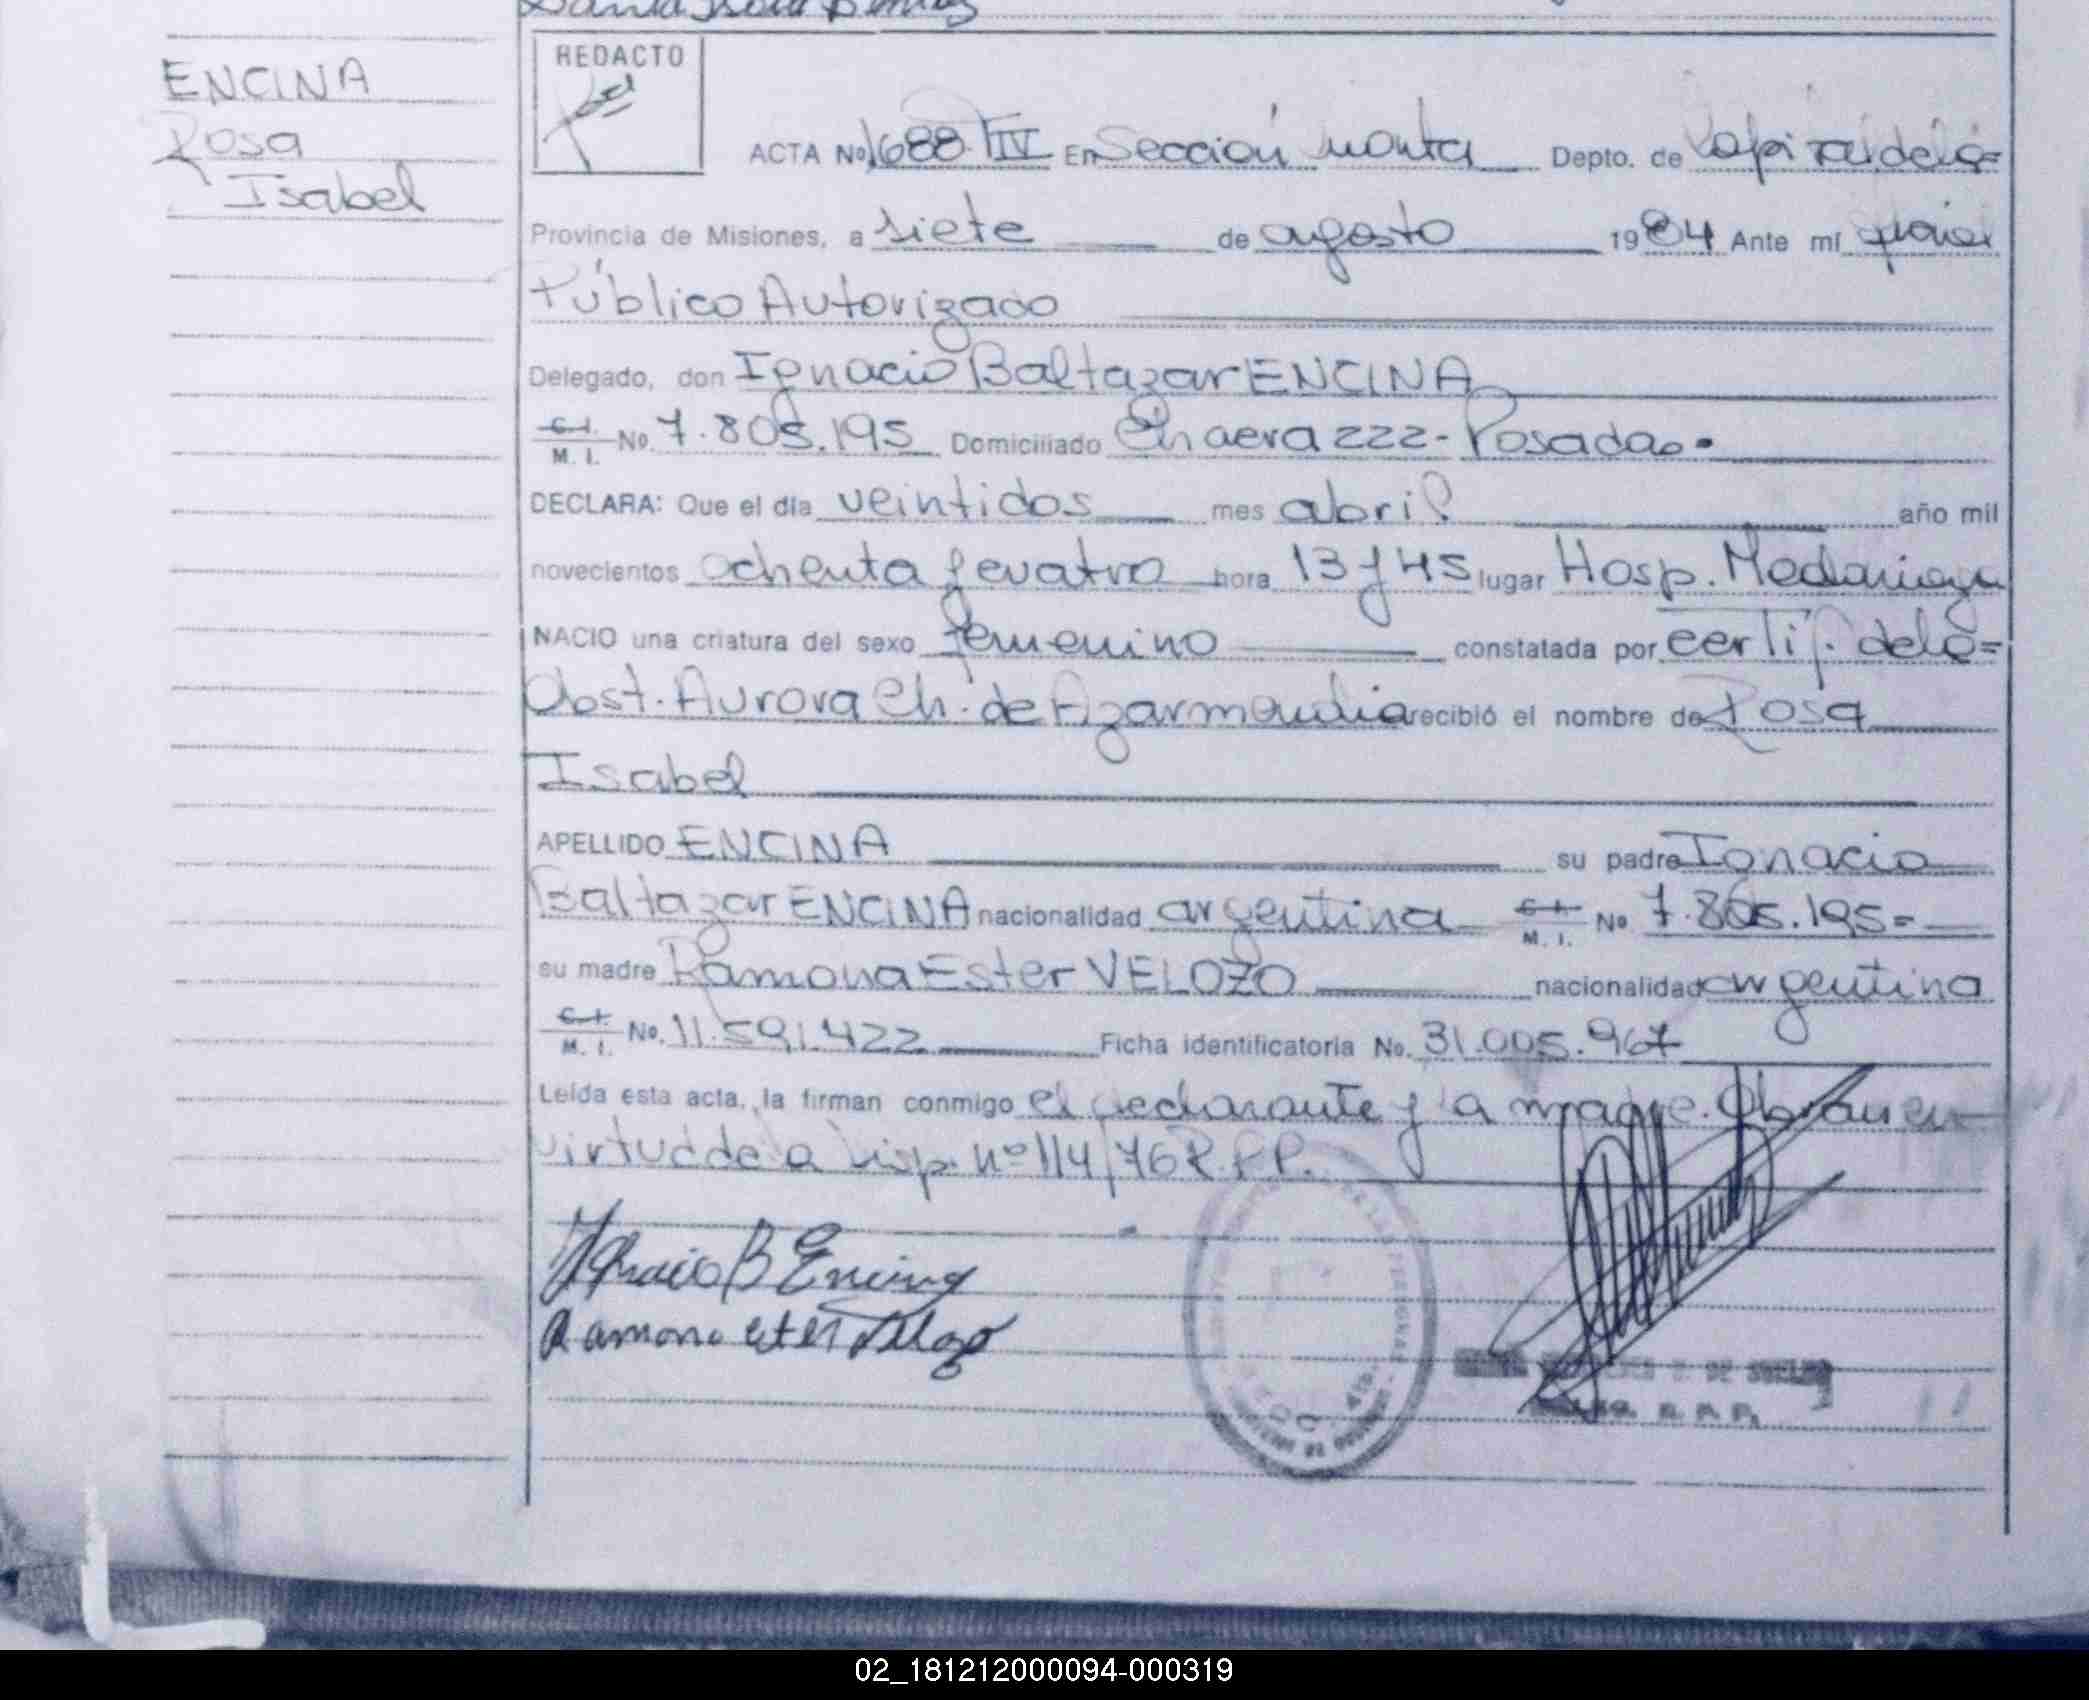 ENCINA
Rosa
Isabel
REDACTO
ACTA No 1688 TIV En Sección nonta Depto. de Capital de la=
Provincia de Misiones, a siete de agosto 1984 Ante mí
Público Autorizado
Delegado, don Ignacio Baltazar ENCINA
C.I. M. I. No. 7.805.195 Domiciliado Chacra 222- Posadas.
DECLARA: Que el día veintidos mes abril año mil
novecientos ochenta y cuatro hora 13 y 45 lugar Hosp. Madariaga
NACIO una criatura del sexo femenino constatada por certif. de la=
Obst. Aurora Ch. de Azarmendia recibió el nombre de Rosa
Isabel
APELLIDO ENCINA su padre Ignacio
Baltazar ENCINA nacionalidad argentina C.I. M. I. No 7.805.195=
su madre Ramona Ester VELOZO nacionalidad argentina
C.I. M. I. No. 11.591.422 Ficha identificatoria No. 31.005.967
Leída esta acta, la firman conmigo el declarante y la madre. Obran en
virtud de la Disp. nº 114/76 R.P.P.
Ignacio B Encina
Ramona Ester Velozo
02_181212000094-000319